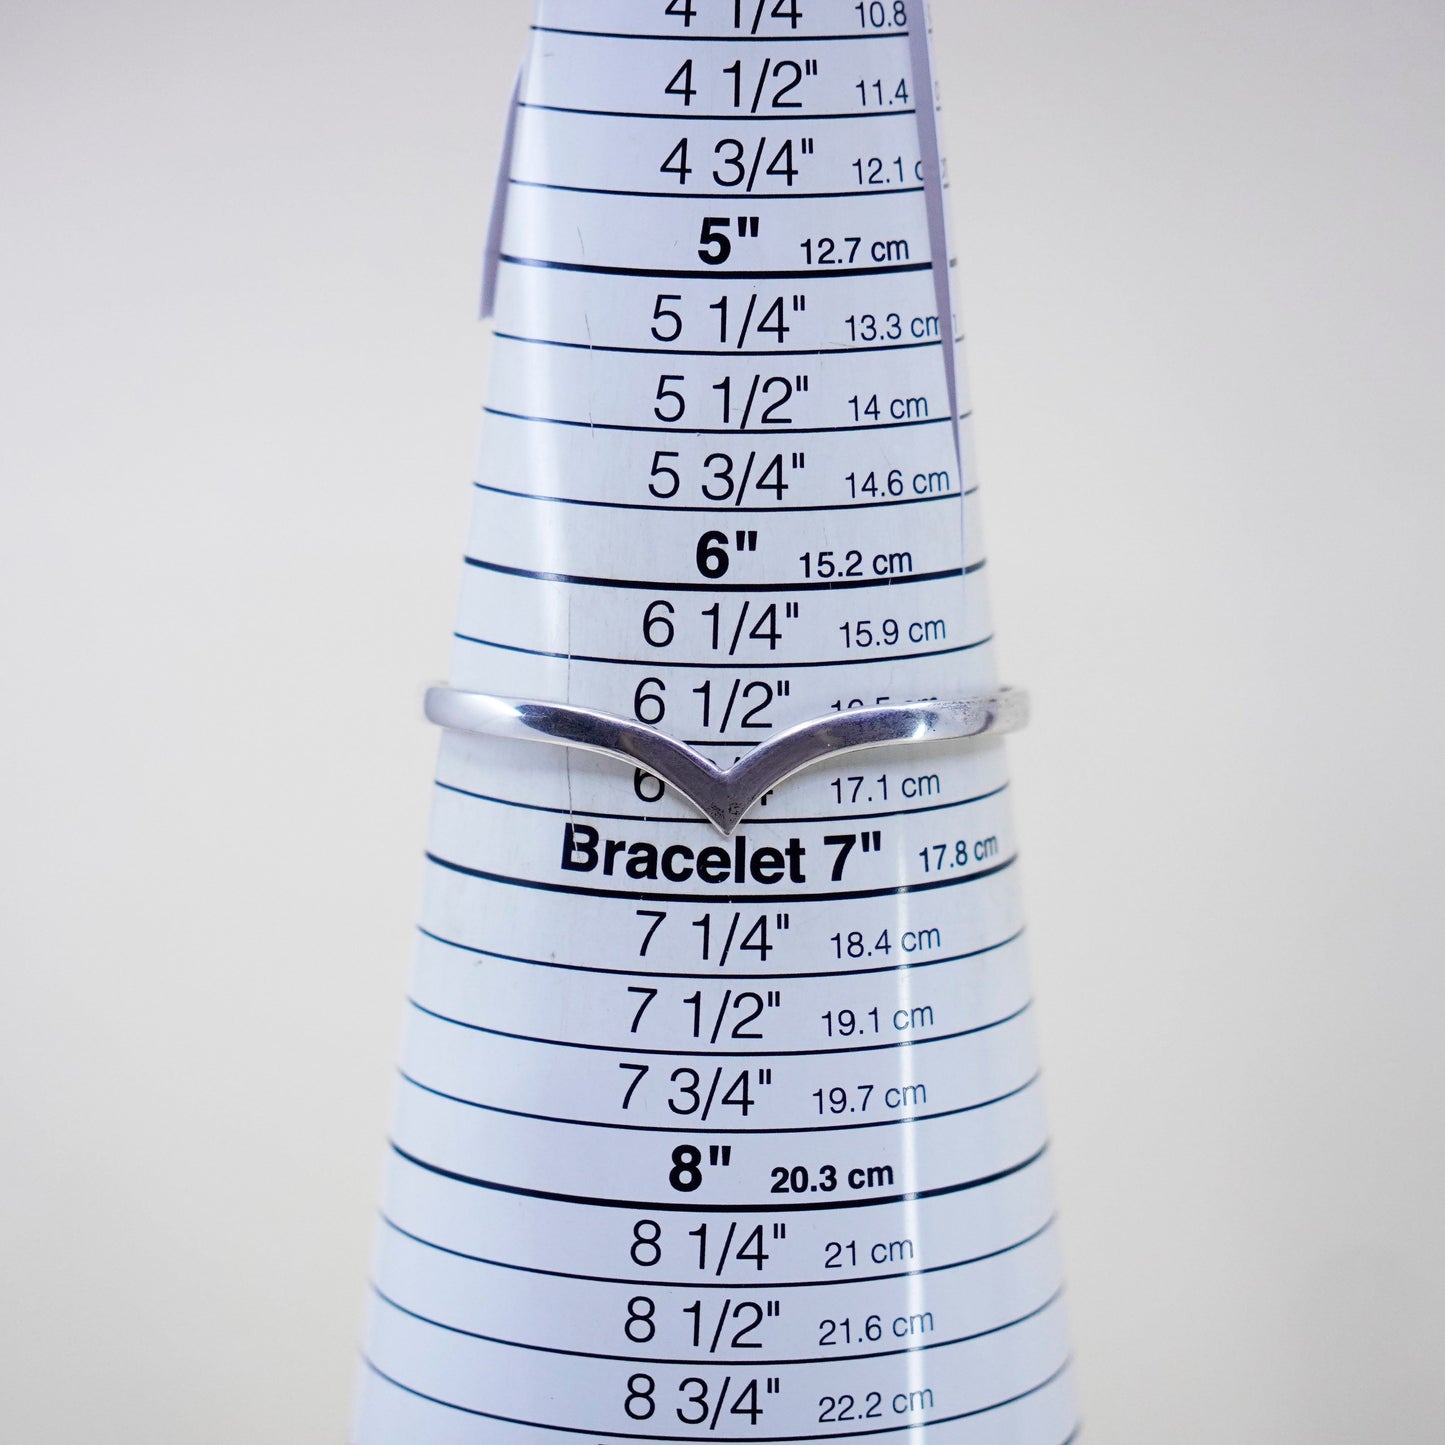 4 1/4 10.8
4 1/2" 11.4
4 3/4" 12.1 c
5" 12.7 cm
5 1/4" 13.3 cm
5 1/2" 14 cm
5 3/4" 14.6 cm
6" 15.2 cm
6 1/4" 15.9 cm
6 1/2" 16.5 cm
6 17.1 cm
Bracelet 7" 17.8 cm
7 1/4" 18.4 cm
7 1/2" 19.1 cm
7 3/4" 19.7 cm
8" 20.3 cm
8 1/4" 21 cm
8 1/2" 21.6 cm
8 3/4" 22.2 cm